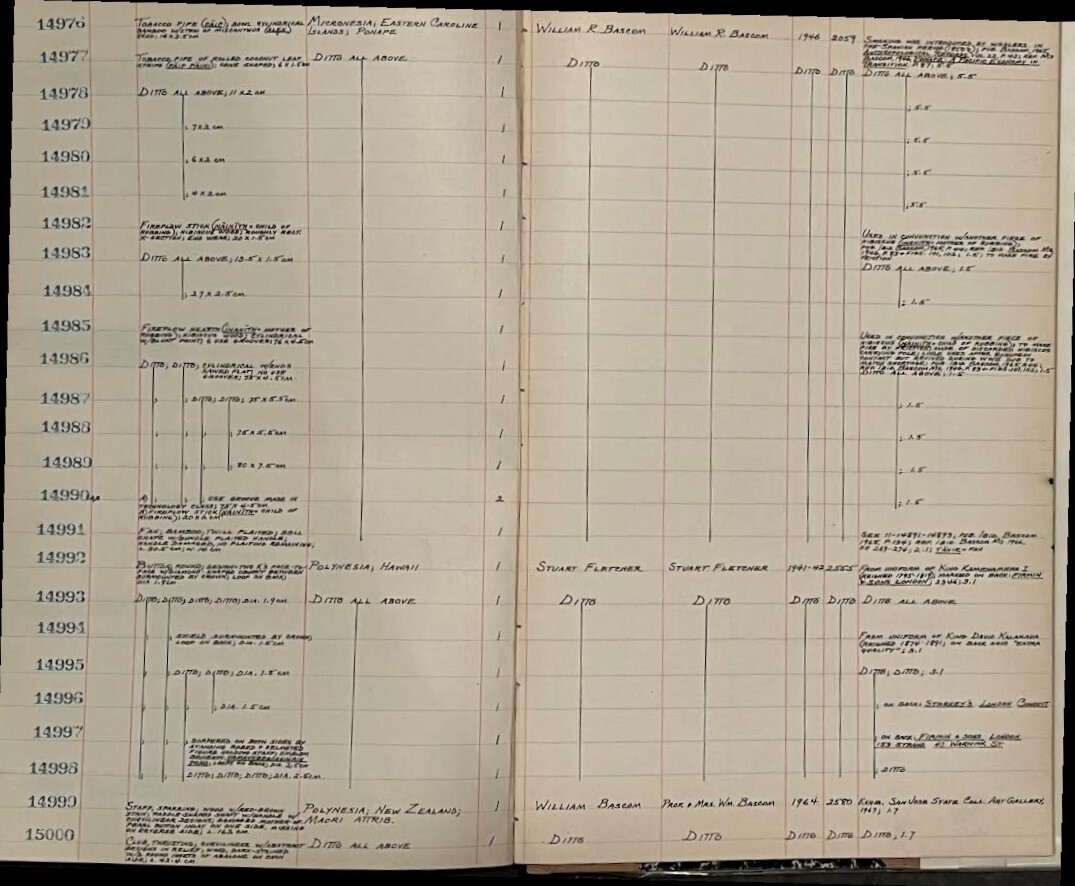 14976 TOBACCO PIPE (PAIP); BOWL CYLINDRICAL MICRONESIA; EASTERN CAROLINE 1 WILLIAM R. BASCOM WILLIAM R. BASCOM 1946 2059 SMOKING WAS INTRODUCED BY WHALERS IN
BAMBOO W/STEM OF MISCANTHUS ISLANDS; PONAPE
14977 TOBACCO PIPE OF ROLLED COCONUT LEAF DITTO ALL ABOVE 1 DITTO DITTO DITTO DITTO DITTO ALL ABOVE; 5.5
14978 DITTO ALL ABOVE; 11 X 2 CM 1 ; 5.5
14979 ; 7 X 2 CM 1 ; 5.5
14980 ; 6 X 2 CM 1 ; 5.5
14981 ; 4 X 2 CM 1 ; 5.5
14982 FIREPLOW STICK (NAINITH = CHILD OF 1 USED IN CONJUNCTION W/ANOTHER PIECE OF
RUBBING); HIBISCUS WOOD; ROUGHLY RECT.
X-SECTION; END WEAR; 20 X 1.5 CM
14983 DITTO ALL ABOVE; 13.5 X 1.5 CM 1 DITTO ALL ABOVE; 1.5
14984 ; 27 X 2.5 CM 1 ; 1.5
14985 FIREPLOW HEARTH (INANITH = MOTHER OF 1 USED IN CONJUNCTION W/ANOTHER PIECE OF
RUBBING); HIBISCUS WOOD; CYLINDRICAL
W/BLUNT POINT; 6 USE GROOVES;
14986 DITTO; DITTO; CYLINDRICAL W/ENDS 1 DITTO ALL ABOVE; 1.5
SAWED FLAT; NO USE
GROOVES; 75 X 4.5 CM
14987 ; DITTO; DITTO; 75 X 5.5 CM 1 ; 1.5
14988 ; 75 X 5.5 CM 1 ; 1.5
14989 ; 80 X 7.5 CM 1 ; 1.5
14990 A,B A) ; USE GROOVE MADE IN 2 ; 1.5
TECHNOLOGY CLASS; 75 X 6.5 CM
B) FIREPLOW STICK (NAINITH = CHILD OF
RUBBING); 20 X 2 CM
14991 FAN; BAMBOO; TWILL PLAITED; BELL 1 SEE 11-14891-14893; PUB. IBID. BASCOM
SHAPE W/BUNDLE PLAITED HANDLE;
HANDLE DAMAGED, NO PLAITING REMAINING;
L. 30.5 CM; W. 14 CM
14992 BUTTON, ROUND; DESIGN: TWO K'S FACE-TO- POLYNESIA; HAWAII 1 STUART FLETCHER STUART FLETCHER 1941-42 2555 FROM UNIFORM OF KING KAMEHAMEHA I
FACE W/DIAMOND-SHAPED OBJECT BETWEEN (REIGNED 1795-1819); MARKED ON BACK: FIRMIN
SURMOUNTED BY CROWN; LOOP ON BACK; & SONS LONDON
DIA. 1.9 CM
14993 DITTO; DITTO; DITTO; DITTO; DIA. 1.9 CM DITTO ALL ABOVE 1 DITTO DITTO DITTO DITTO DITTO ALL ABOVE
14994 ; SHIELD SURMOUNTED BY CROWN; 1 FROM UNIFORM OF KING DAVID KALAKAUA
LOOP ON BACK; DIA. 1.5 CM (REIGNED 1874-1891); ON BACK SAYS "EXTRA
QUALITY"; 3.1
14995 ; DITTO; DITTO; DIA. 1.5 CM 1 DITTO; DITTO; 3.1
14996 ; DIA. 1.5 CM 1 ; ON BACK: STARKEY'S LONDON CONDUIT
14997 ; BORDERED ON BOTH SIDES BY 1 ; ON BACK: FIRMIN & SONS LONDON
STANDING ROBED & HELMETED 153 STRAND 13 WARWICK ST
FIGURE HOLDING STAFF; EMBLEM
14998 DITTO; DITTO; DITTO; DIA. 2.5 CM. 1 ; DITTO
14999 STAFF, SPARRING; WOOD W/RED-BROWN POLYNESIA; NEW ZEALAND; 1 WILLIAM BASCOM PROF. & MRS. WM. BASCOM 1964 2580 EXHB. SAN JOSE STATE COLL. ART GALLERY,
STAIN; PADDLE-SHAPED SHAFT W/HANDLE W/ MAORI ATTRIB. 1967; 1.7
CURVILINEAR DESIGNS; DAMAGED MOTHER OF
PEARL BUTTON INLAY ON ONE SIDE, MISSING
ON REVERSE SIDE; L. 163 CM
15000 CLUB, THRUSTING; CURVILINEAR W/ABSTRACT DITTO ALL ABOVE 1 DITTO DITTO DITTO DITTO DITTO; 1.7
DESIGNS IN RELIEF; WOOD, DARK-STAINED
W/3 ROUND INSETS OF ABALONE ON EACH
SIDE; L. 43.4 CM